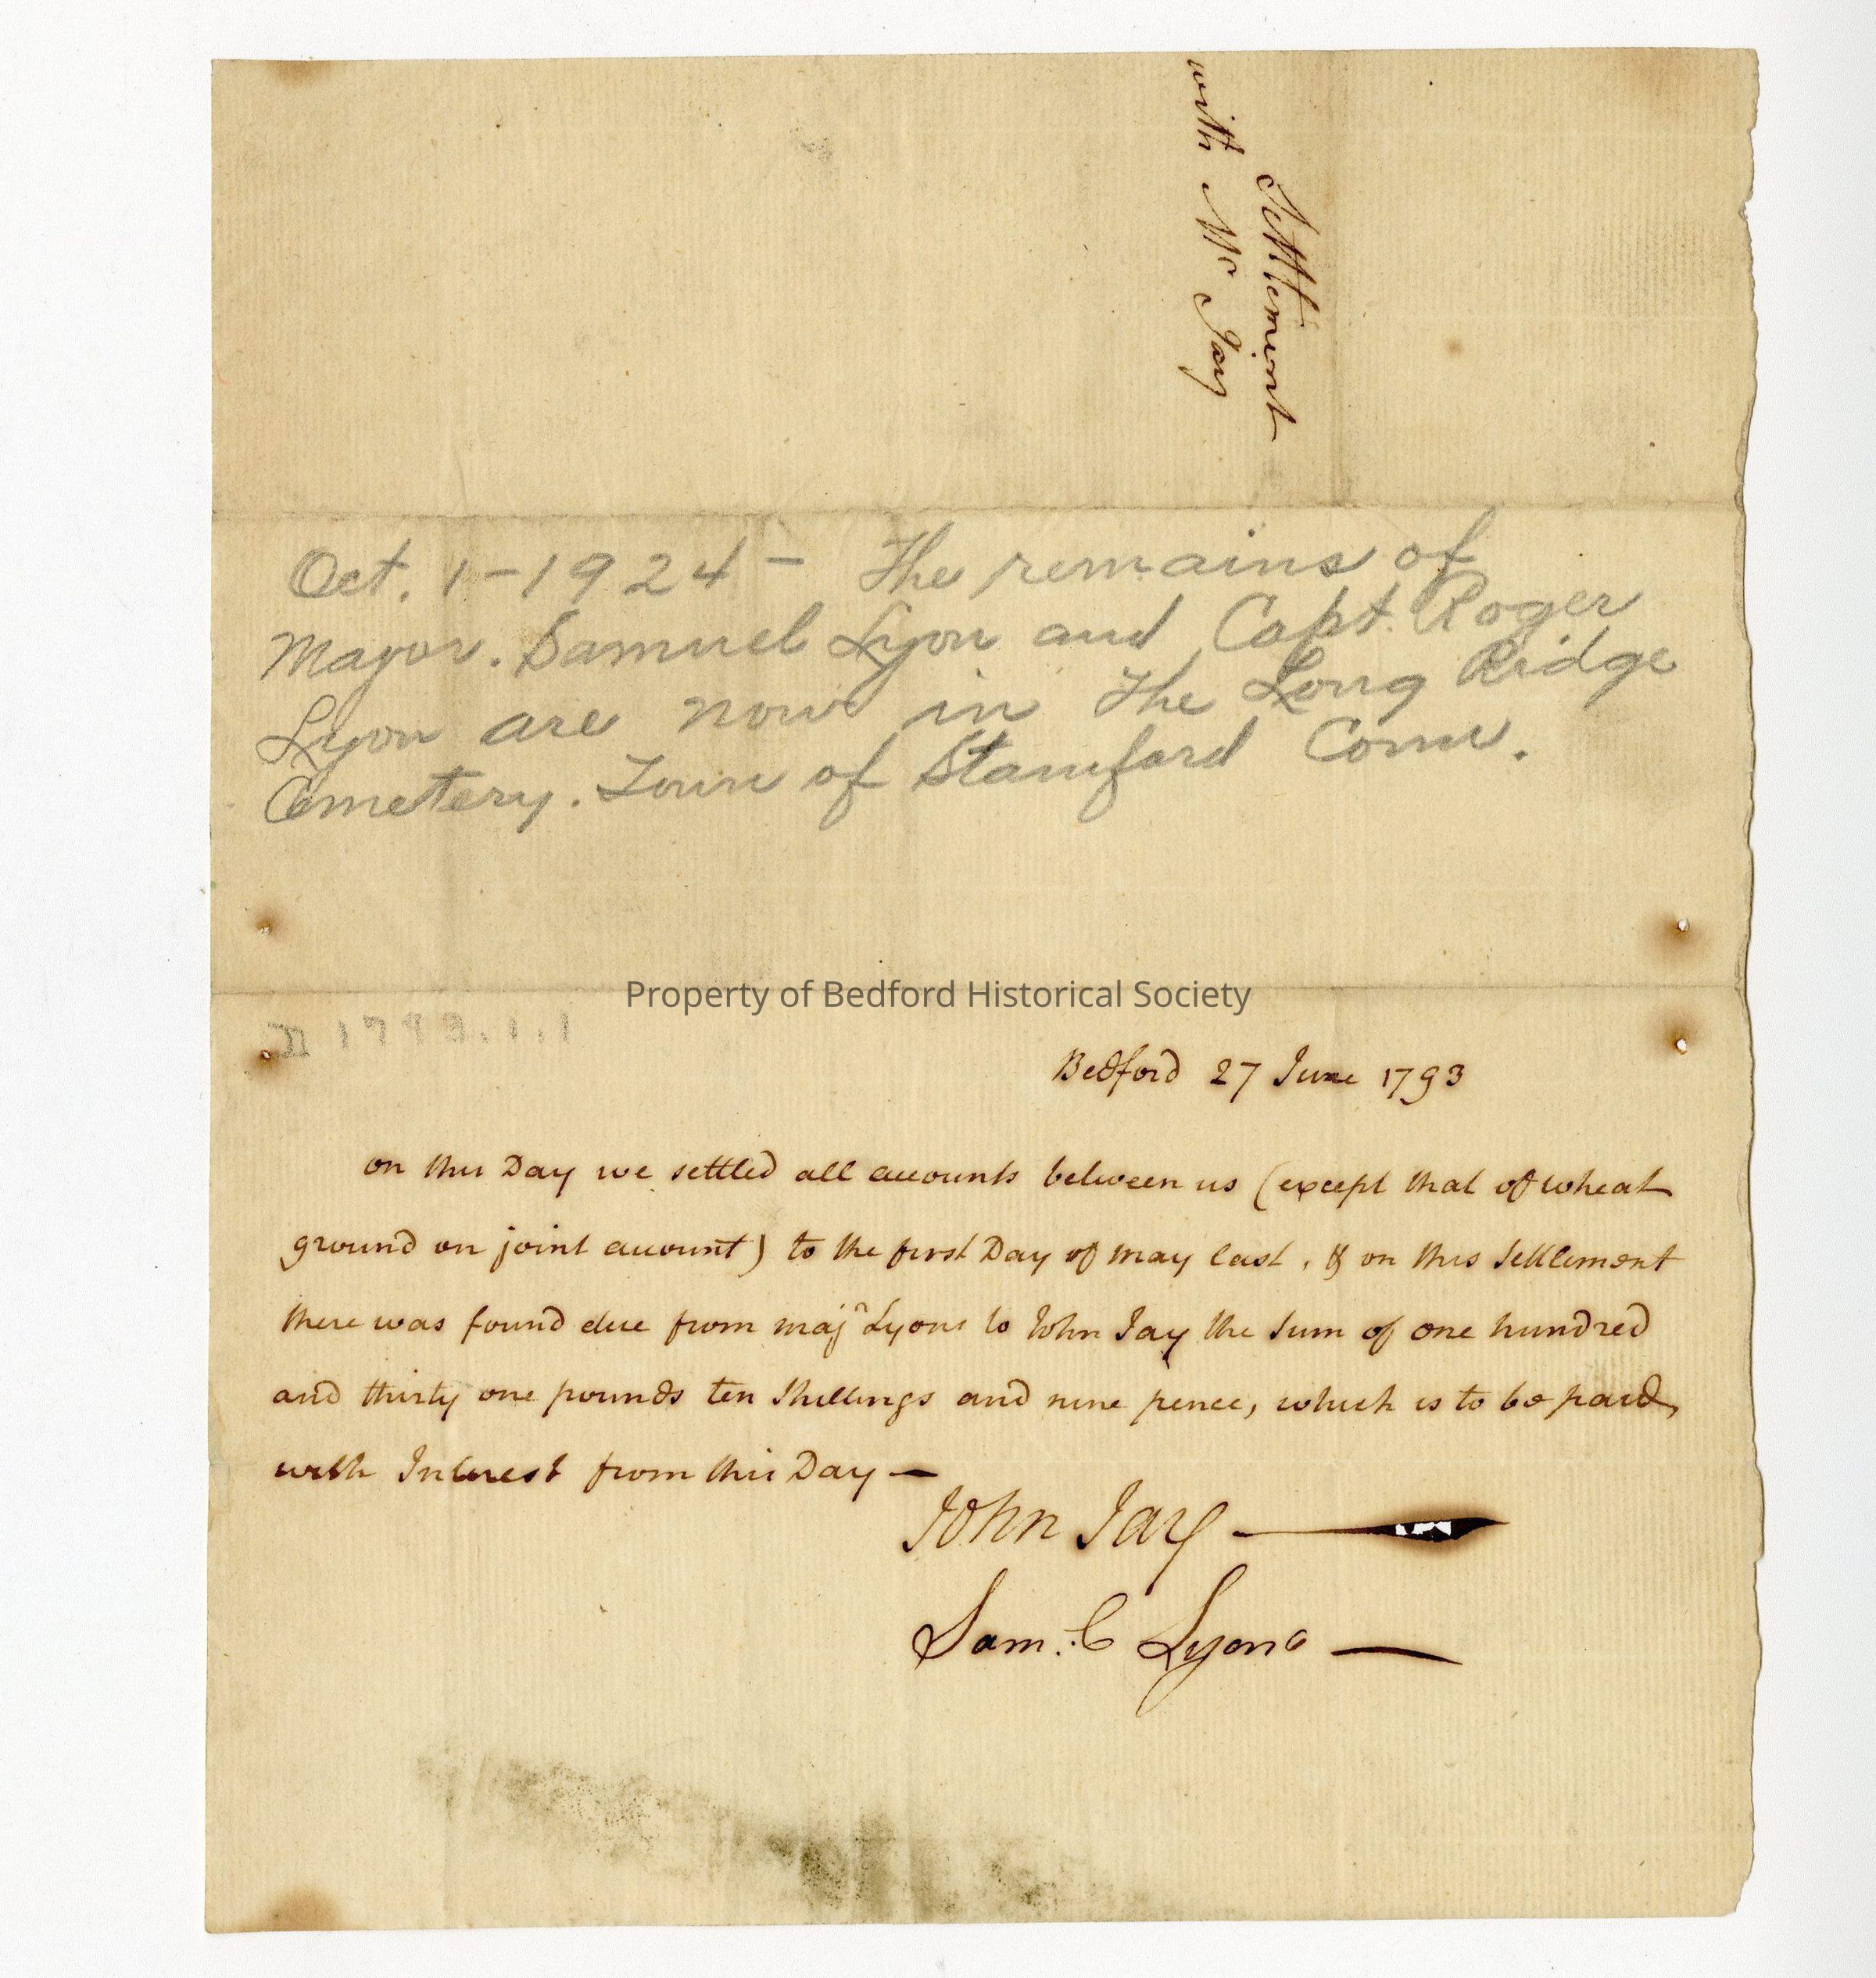 Settlement
with Mr Jay
Oct. 1-1924 - The remains of
Mayor. Samuel Lyon and Capt. Roger
Lyon are now in the Long Ridge
Cemetery. Town of Stamford Conn.
Property of Bedford Historical Society
1793.1.1
Bedford 27 June 1793
on this Day we settled all accounts between us (except that of wheat
ground on joint account) to the first Day of may last, & on this Settlement
there was found due from majr Lyons to John Jay the Sum of one hundred
and thirty one pounds ten Shillings and nine pence, which is to be paid,
with Interest from this Day —
John Jay —
Sam.l Lyons —